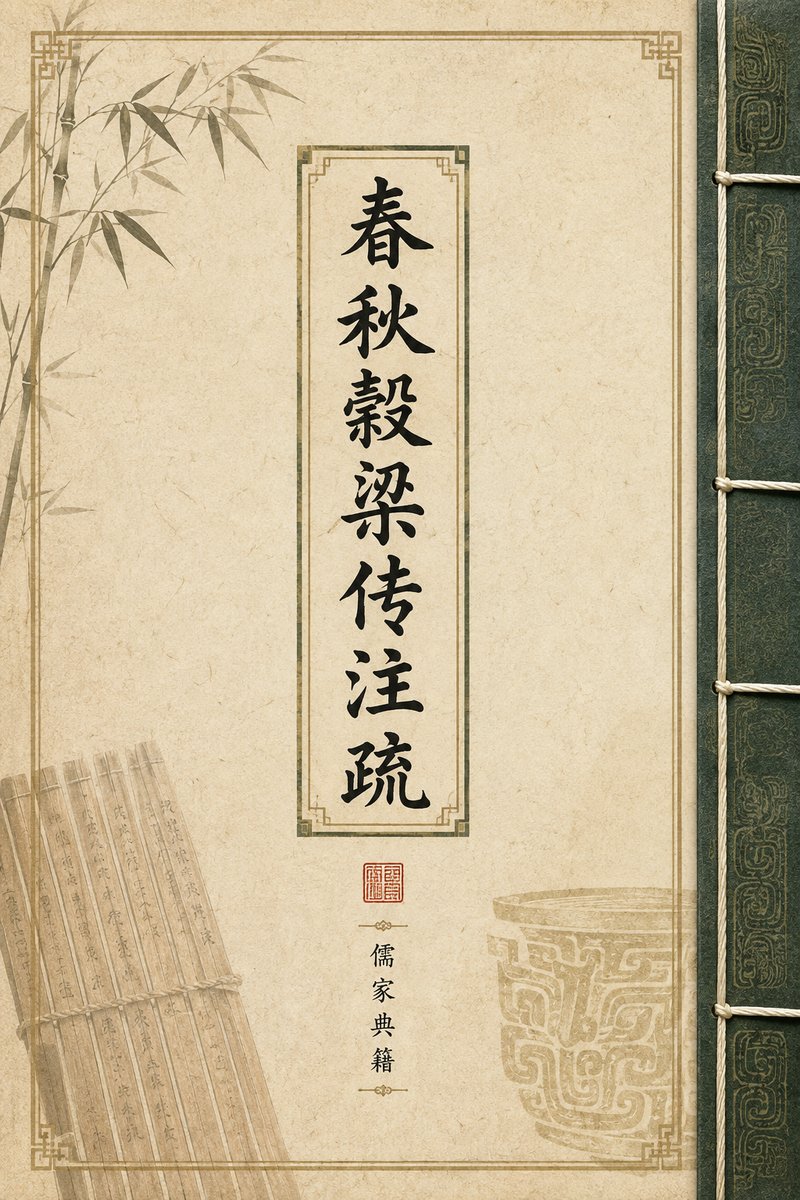 春秋穀梁传注疏
儒家典籍